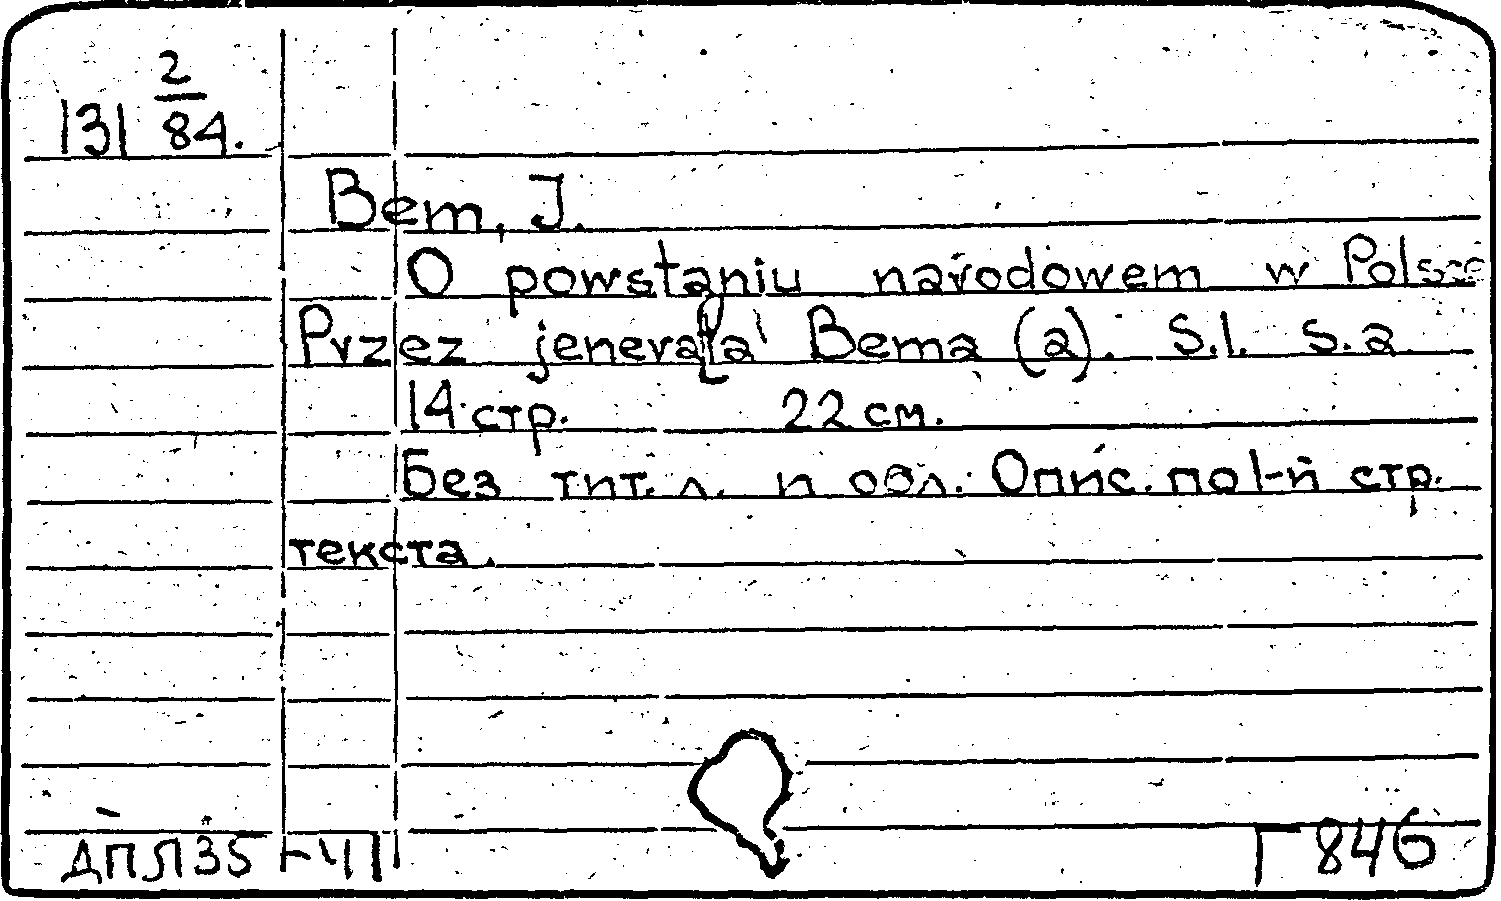 131 2/84.
Bem, J.
O powstaniu narodowem w Polsce
Przez jenerała Bema (a). S.l. s.a.
14 стр. 22 см.
Без тит. л. и обл. Опис. по 1-й стр.
текста.
Г 846